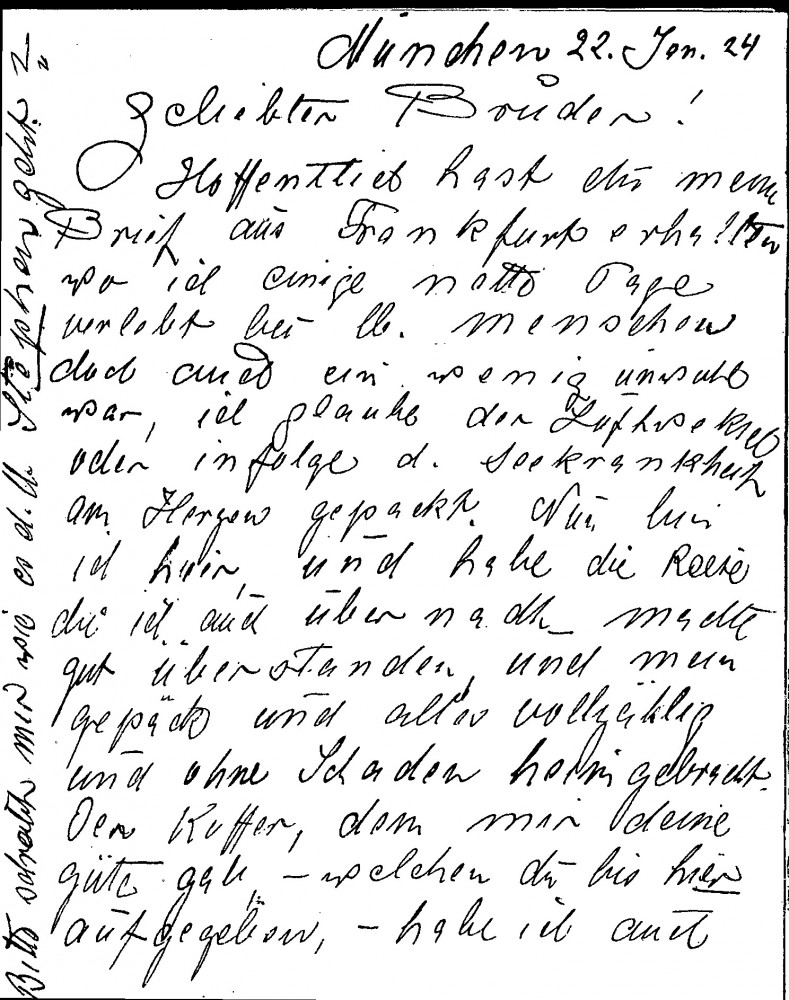 München 22. Jan. 24
Geliebter Bruder!
Hoffentlich hast du mein
Brief aus Frankfurt erhalten
wo ich einige nette Tage
verlebt bei lb. Menschen
doch auch ein wenig unwohl
war, ich glaube der Luftwechsel
oder infolge d. Seekrankheit
am Herzen gepackt. Nun bin
ich hier, und habe die Reise
die ich auch über nacht machte
gut überstanden, und mein
gepäck und alles vollzählig
und ohne Schaden heimgebracht.
Den Koffer, dem mir deine
güte gab, – welchen du bis hier
aufgegeben, – habe ich auch
Bitte schreib mir wie es d. lb. Stephan geht?